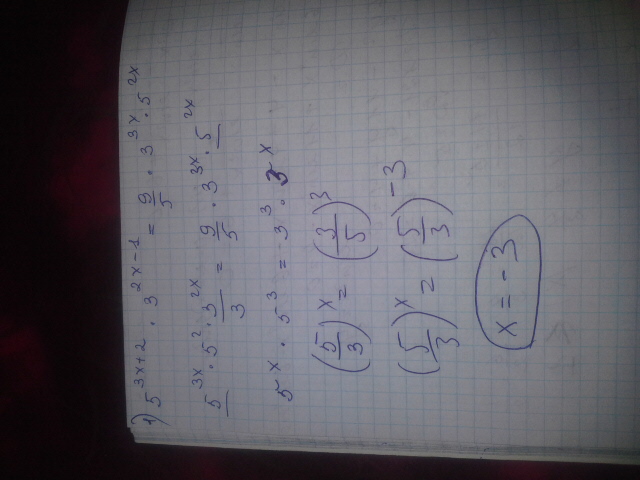 1) 5^{3x+2} · 3^{2x-1} = 9/5 · 3^{3x} · 5^{2x}
5^{3x} · 5^2 · 3^{2x}/3 = 9/5 · 3^{3x} · 5^{2x}
5^x · 5^3 = 3^3 · 3^x
(5/3)^x = (3/5)^3
(5/3)^x = (5/3)^{-3}
x = -3